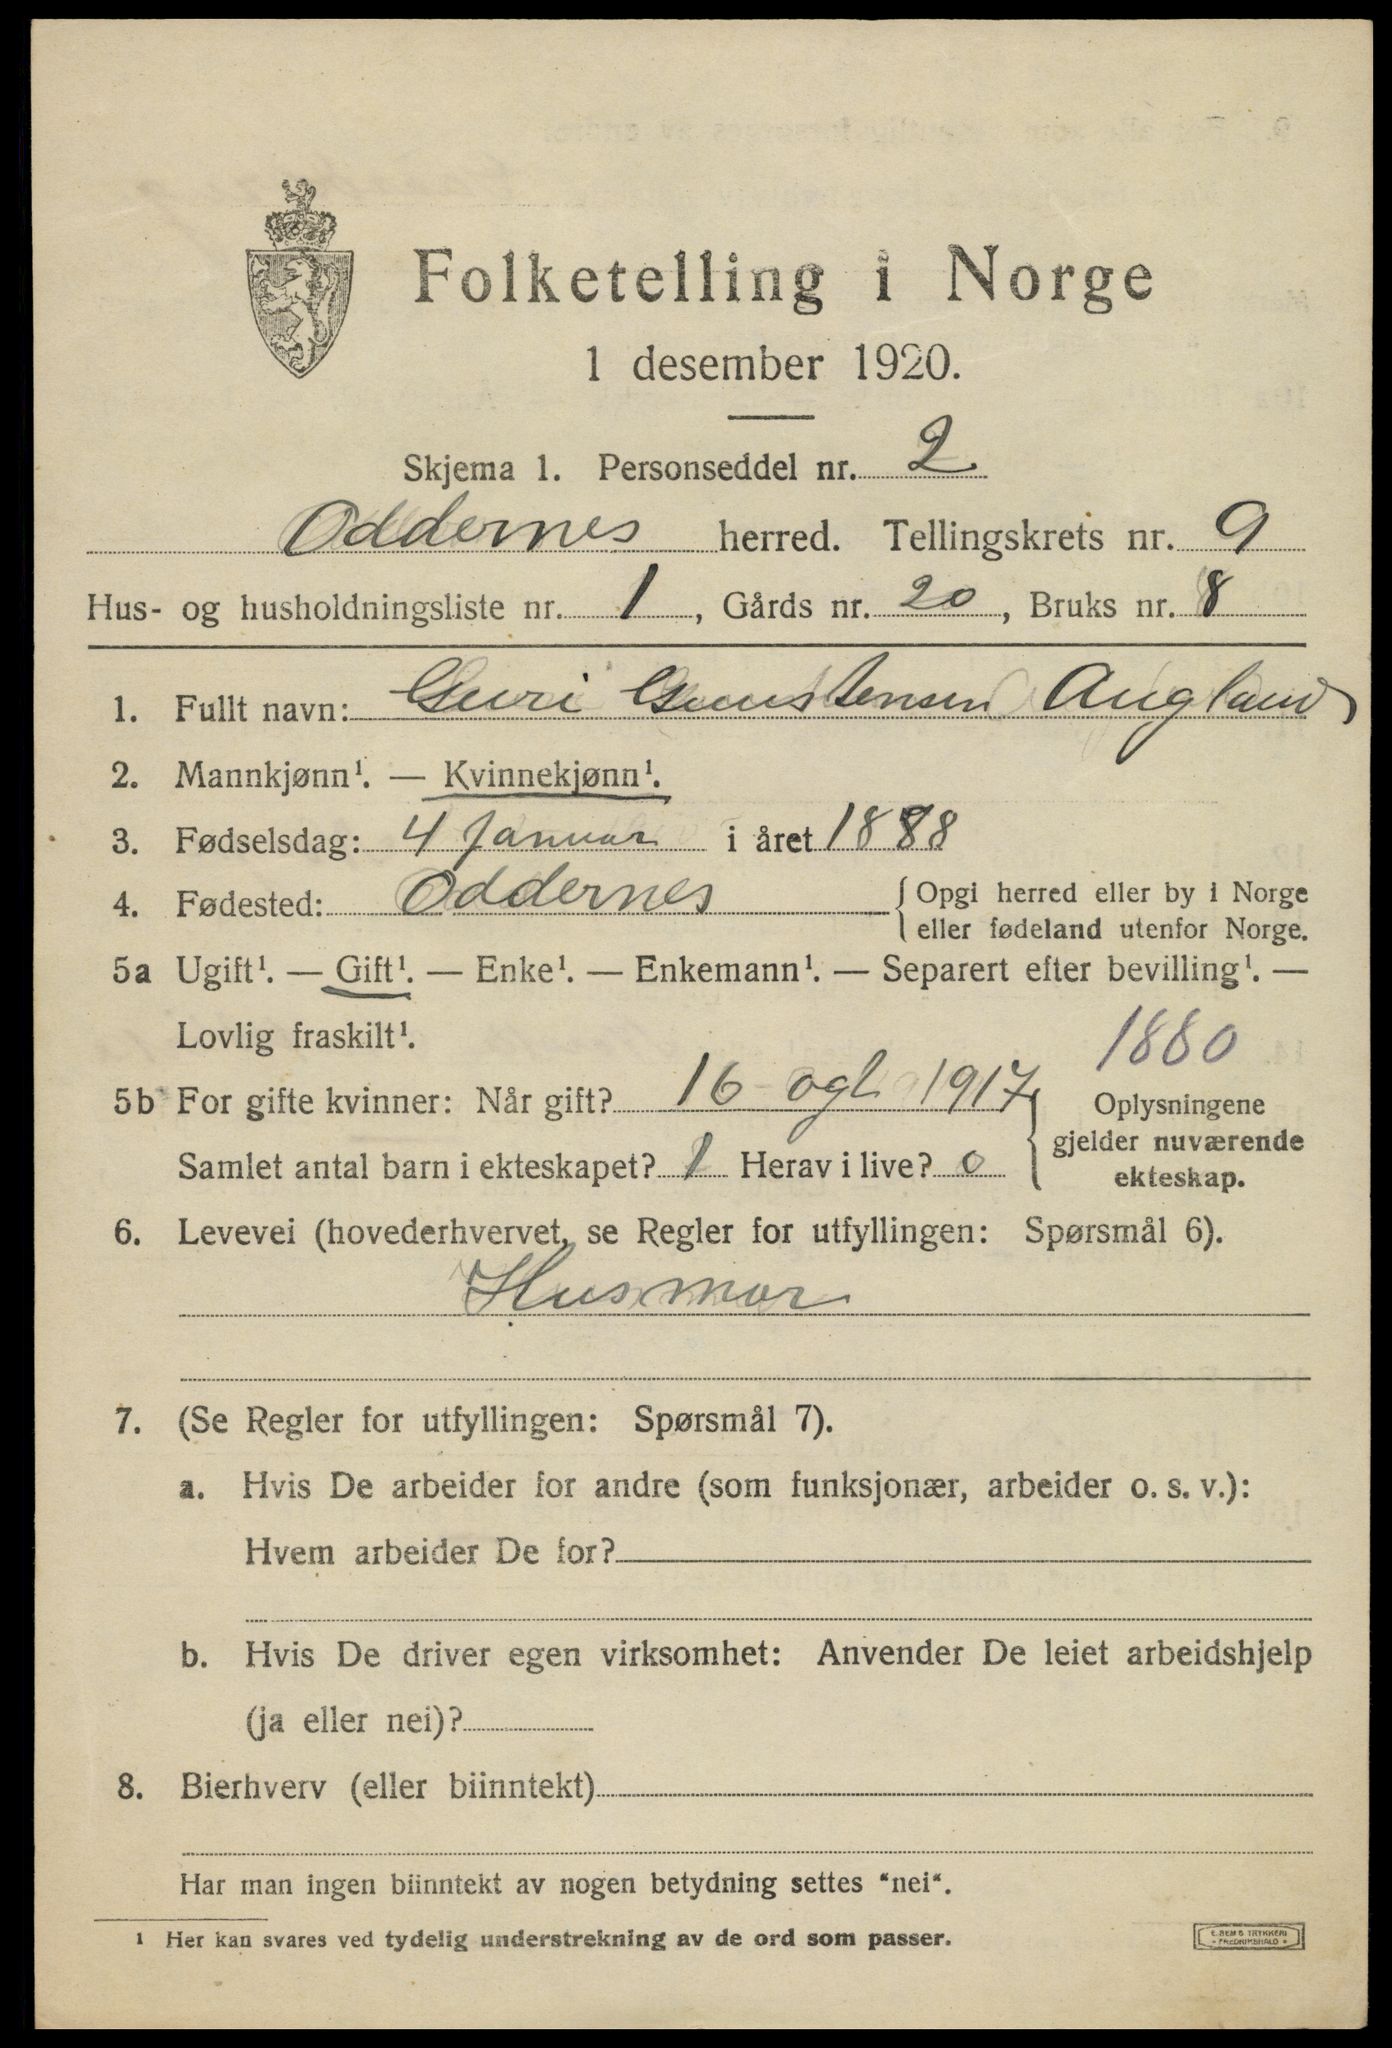 Folketelling i Norge
1 desember 1920.
Skjema 1. Personseddel nr. 2
Oddernes herred. Tellingskrets nr. 9
Hus- og husholdningsliste nr. 1, Gårds nr. 20, Bruks nr. 8
1. Fullt navn: Guri Gunstensen Augland
2. Mannkjønn¹. — Kvinnekjønn¹.
3. Fødselsdag: 4 Januar i året 1888
4. Fødested: Oddernes { Opgi herred eller by i Norge
eller fødeland utenfor Norge.
5a Ugift¹. — Gift¹. — Enke¹. — Enkemann¹. — Separert efter bevilling¹. —
Lovlig fraskilt¹.
1880
5b For gifte kvinner: Når gift? 16 1917
Samlet antal barn i ekteskapet? 1 Herav i live? 0
Oplysningene
gjelder nuværende
ekteskap.
6. Levevei (hovederhvervet, se Regler for utfyllingen: Spørsmål 6).
Husmor
7. (Se Regler for utfyllingen: Spørsmål 7).
a. Hvis De arbeider for andre (som funksjonær, arbeider o. s. v.):
Hvem arbeider De for?
b. Hvis De driver egen virksomhet: Anvender De leiet arbeidshjelp
(ja eller nei)?
8. Bierhverv (eller biinntekt)
Har man ingen biinntekt av nogen betydning settes "nei".
1 Her kan svares ved tydelig understrekning av de ord som passer.
E. SEM'S TRYKKERI
FREDRIKSHALD